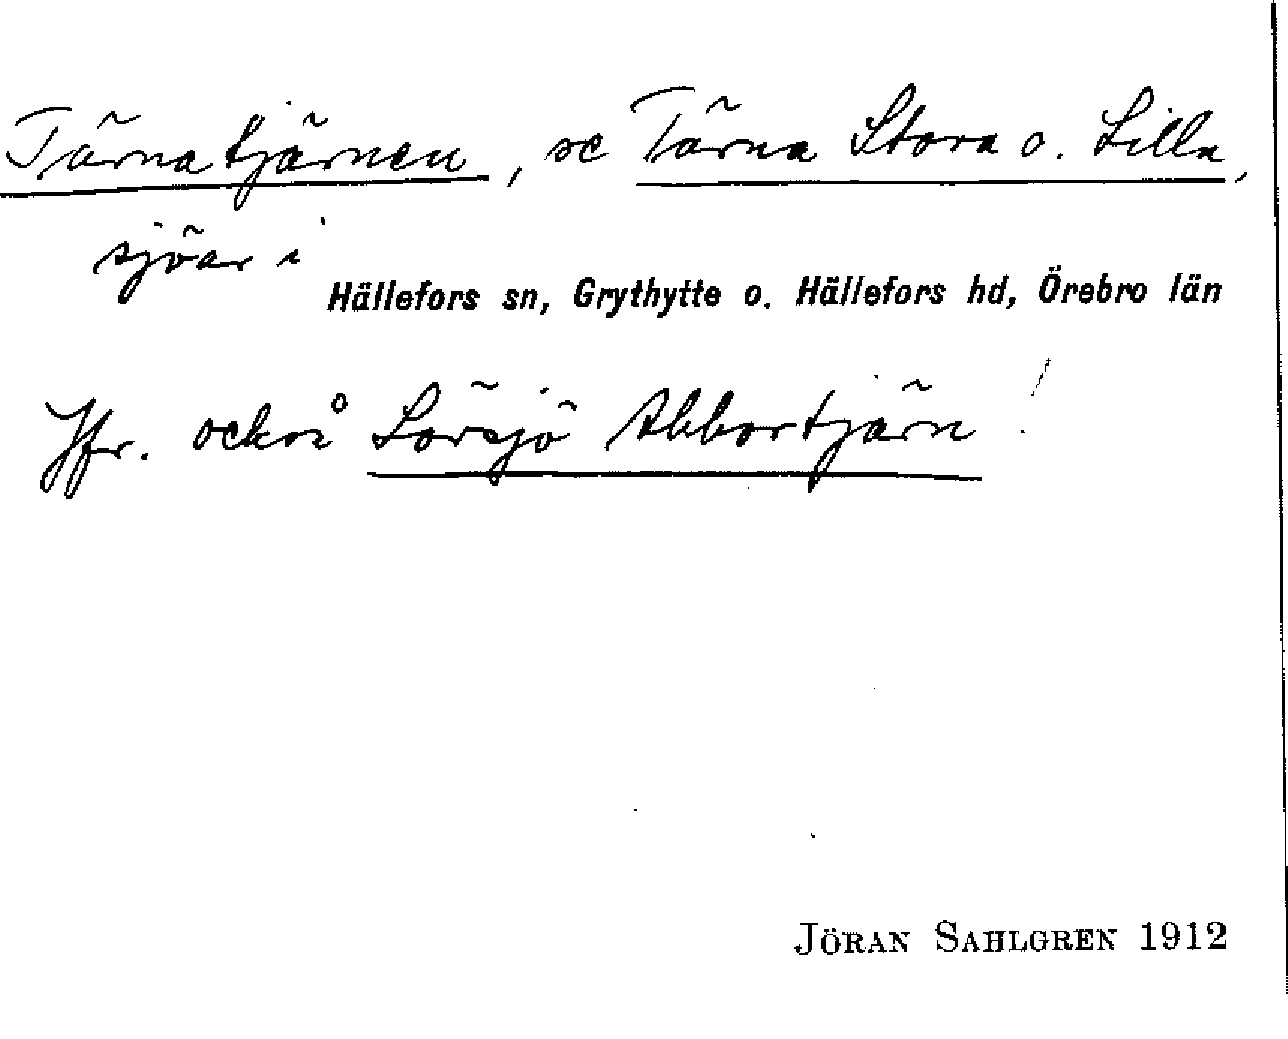 Tärnatjärnen, se Tärna Stora o. Lilla,
sjöar i
Hällefors sn, Grythytte o. Hällefors hd, Örebro län
Jfr. också Lörsjö Abbortjärn!
JÖRAN SAHLGREN 1912